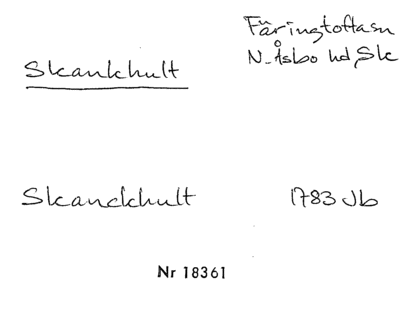 Färingtofta sn
Skankhult N. Åsbo hd, Sk
Skanckhult 1783 Jb
Nr 18361